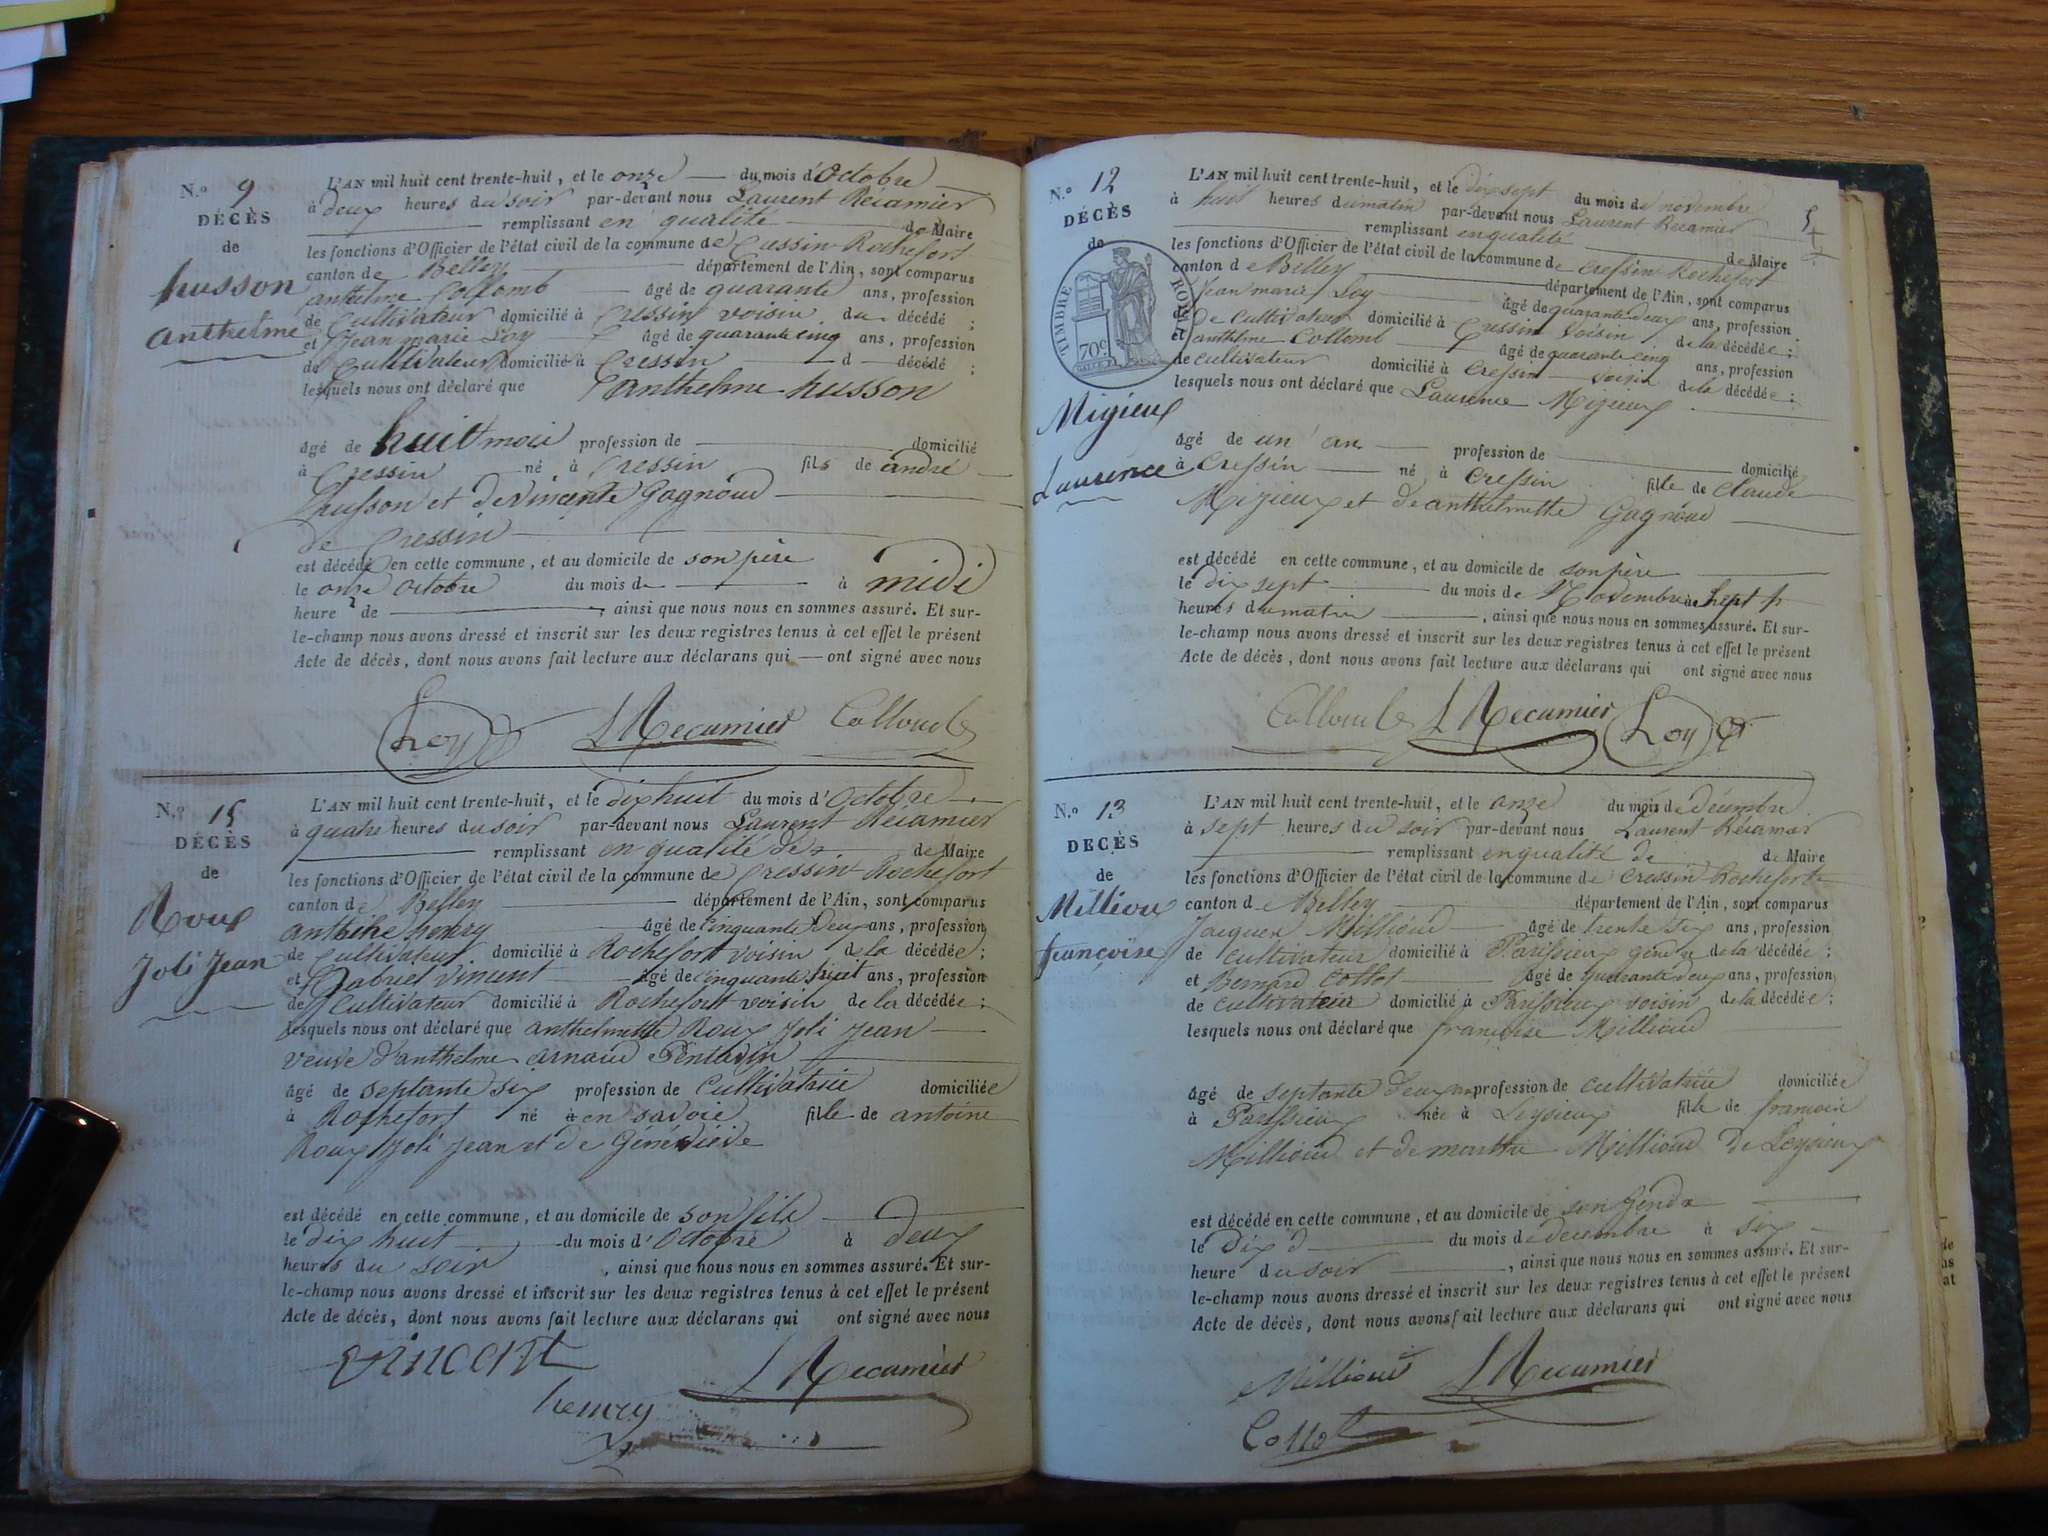 N.o 9
DÉCÈS
de
husson
anthelme
L'AN mil huit cent trente-huit, et le onze du mois d'Octobre
à deux heures du soir par-devant nous Laurent Récamier
remplissant en qualité de Maire
les fonctions d'Officier de l'état civil de la commune de Cressin Rochefort
canton de Belley département de l'Ain, sont comparus
anthelme Collomb âgé de quarante ans, profession
de Cultivateur domicilié à Cressin voisin du décédé ;
et Jean marie Loy âgé de quarante cinq ans, profession
de Cultivateur domicilié à Cressin d décédé ;
lesquels nous ont déclaré que anthelme husson
âgé de huit mois profession de domicilié
à Cressin né à Cressin fils de andré
husson et de vincente Gagnoud
de Cressin
est décédé en cette commune, et au domicile de son père
le onze octobre du mois de à midi
heure de , ainsi que nous nous en sommes assuré. Et sur-
le-champ nous avons dressé et inscrit sur les deux registres tenus à cet effet le présent
Acte de décès, dont nous avons fait lecture aux déclarans qui ont signé avec nous
Loy L Recamier Colloub
N.o 15
DÉCÈS
de
Roux
Joli Jean
L'AN mil huit cent trente-huit, et le dix huit du mois d'Octobre
à quatre heures du soir par-devant nous Laurent Récamier
remplissant en qualité de de Maire
les fonctions d'Officier de l'état civil de la commune de Cressin Rochefort
canton de Belley département de l'Ain, sont comparus
henry âgé de cinquante deux ans, profession
de Cultivateur domicilié à Rochefort voisin de la décédée ;
et Gabriel vincent âgé de cinquante huit ans, profession
de Cultivateur domicilié à Rochefort voisin de la décédée ;
lesquels nous ont déclaré que anthelmette Roux Joli Jean
veuve d'anthelme arnaud
âgé de septante six profession de Cultivatrice domiciliée
à Rochefort né à en savoie fille de antoine
Roux Joli Jean et de Généviève
est décédé en cette commune, et au domicile de son fils
le dix huit du mois d'Octobre à deux
heures du soir , ainsi que nous nous en sommes assuré. Et sur-
le-champ nous avons dressé et inscrit sur les deux registres tenus à cet effet le présent
Acte de décès, dont nous avons fait lecture aux déclarans qui ont signé avec nous
vincent L Recamier
henry
N.o 12
DÉCÈS
de
TIMBRE ROYAL
70c
Migieux
Laurence
L'AN mil huit cent trente-huit, et le dix sept du mois de novembre
à huit heures du matin par-devant nous Laurent Récamier
remplissant en qualité de Maire
les fonctions d'Officier de l'état civil de la commune de Cressin Rochefort
canton de Belley département de l'Ain, sont comparus
Jean marie Loy âgé de quarante deux ans, profession
de Cultivateur domicilié à Cressin voisin de la décédée ;
et anthelme Collomb âgé de quarante cinq ans, profession
de cultivateur domicilié à Cressin voisin de la décédée ;
lesquels nous ont déclaré que Laurence Migieux
âgé de un an profession de domicilié
à Cressin né à Cressin fille de Claude
Migieux et de anthelmette Gagnoud
est décédé en cette commune, et au domicile de son père
le dix sept du mois de Novembre à sept
heures du matin , ainsi que nous nous en sommes assuré. Et sur-
le-champ nous avons dressé et inscrit sur les deux registres tenus à cet effet le présent
Acte de décès, dont nous avons fait lecture aux déclarans qui ont signé avec nous
Colloub L Recamier Loy
N.o 13
DÉCÈS
de
Milliou
françoise
L'AN mil huit cent trente-huit, et le onze du mois de décembre
à sept heures du soir par-devant nous Laurent Récamier
remplissant en qualité de de Maire
les fonctions d'Officier de l'état civil de la commune de Cressin Rochefort
canton de Belley département de l'Ain, sont comparus
Jacques Millioud âgé de trente six ans, profession
de cultivateur domicilié à Parissieux gendre de la décédée ;
et Bernard Cottot âgé de quarante deux ans, profession
de cultivateur domicilié à Parissieux voisin de la décédée ;
lesquels nous ont déclaré que françoise Millioud
âgé de septante deux ans profession de cultivatrice domiciliée
à Parissieux née à Leysieux fille de francois
Millioud et de marthe Millioud de Leysieux
est décédé en cette commune, et au domicile de son gendre
le dix du mois de decembre à six
heure du soir , ainsi que nous nous en sommes assuré. Et sur-
le-champ nous avons dressé et inscrit sur les deux registres tenus à cet effet le présent
Acte de décès, dont nous avons fait lecture aux déclarans qui ont signé avec nous
Millioud L Recamier
Cottot